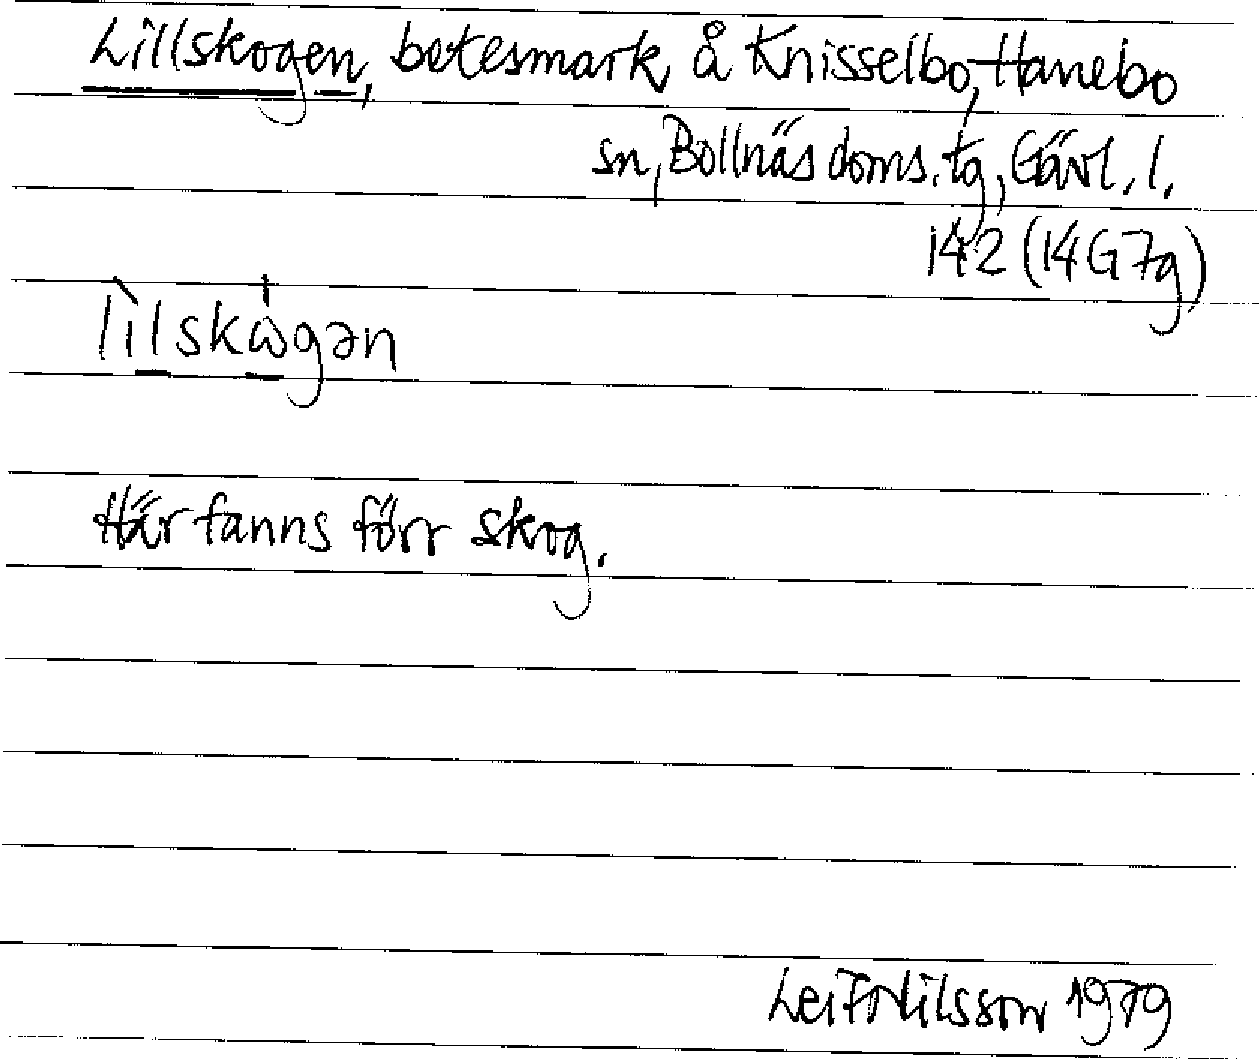 Lillskogen, betesmark, å Knisselbo, Hanebo
sn, Bollnäs doms.tg, Gävl. l.
142 (14G7g)
lìlskωgən
Här fanns förr skog.
Leif Nilsson 1979